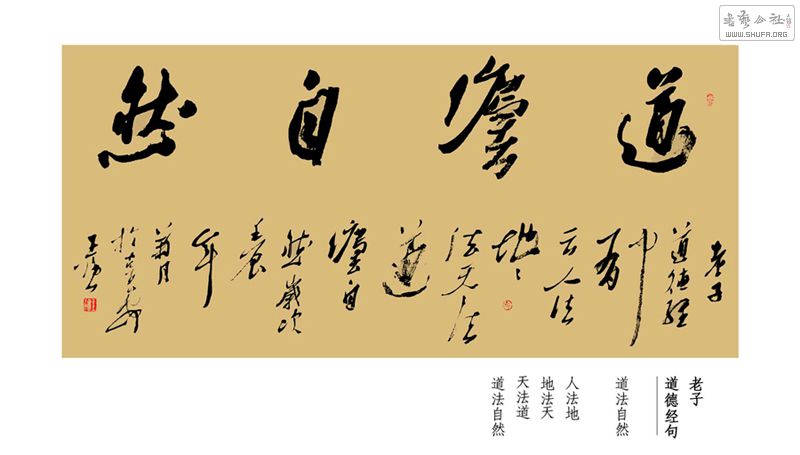 書藝公社
WWW.SHUFA.ORG
道灋自然
老子
道德經
中
有
云人法
地〻
法天法
道
灋自
然歲次
壬辰
年
老子
道德经句
道法自然
人法地
地法天
天法道
道法自然